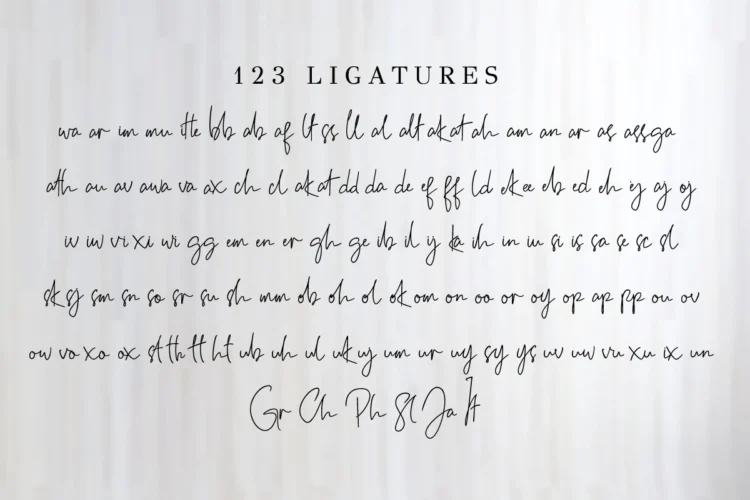 123 LIGATURES
wa ar im mu tte bb ab af lt ss ll al alt ak at ah am an ar as ass ga
ath au av awa va ax ch cl ak at dd da de ef ff ld ek ee eb ed eh ey aj oj
iv iw vi xi wi gg em en er gh ge ib il y ka ih in iu si is sa se sc sl
sk sj sm sn so sr su sh mm ob oh ol ok om on oo or oy op ap pp ou ov
ow vo xo ox st th tt ht ub uh ul uk uy um ur uy sy ys uv uw vu xu ix un
Gr Ch Ph Sl Ja